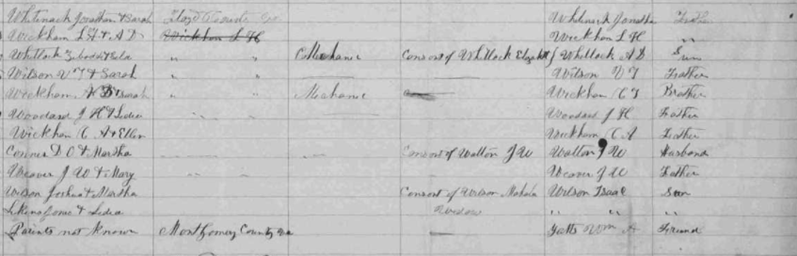 Whitenack Jonathan & Sarah Floyd County Whitenack Jonatha Father
Wickham L H & A D Wickham L H Wickham L H "
Whitlock & " " Mechanic Consort of Whitlock Elizabeth Whitlock A D Son
Wilson W T & Sarah " " Wilson W T Father
Wickham & Sarah " " Mechanic Wickham C T Brother
Woodard J H & Lidia " " Woodard J H Father
Wickham C A & Ellen Wickham C A Father
Conner D O & Martha Consort of Walton J W Walton J W Husband
Weaver J W & Mary Weaver J W Father
Wilson Joshua & Martha Consort of Wilson Mahala Wilson Isaac Son
& Lidia Widow " " "
Parents not known Montgomery County Va Wm Friend